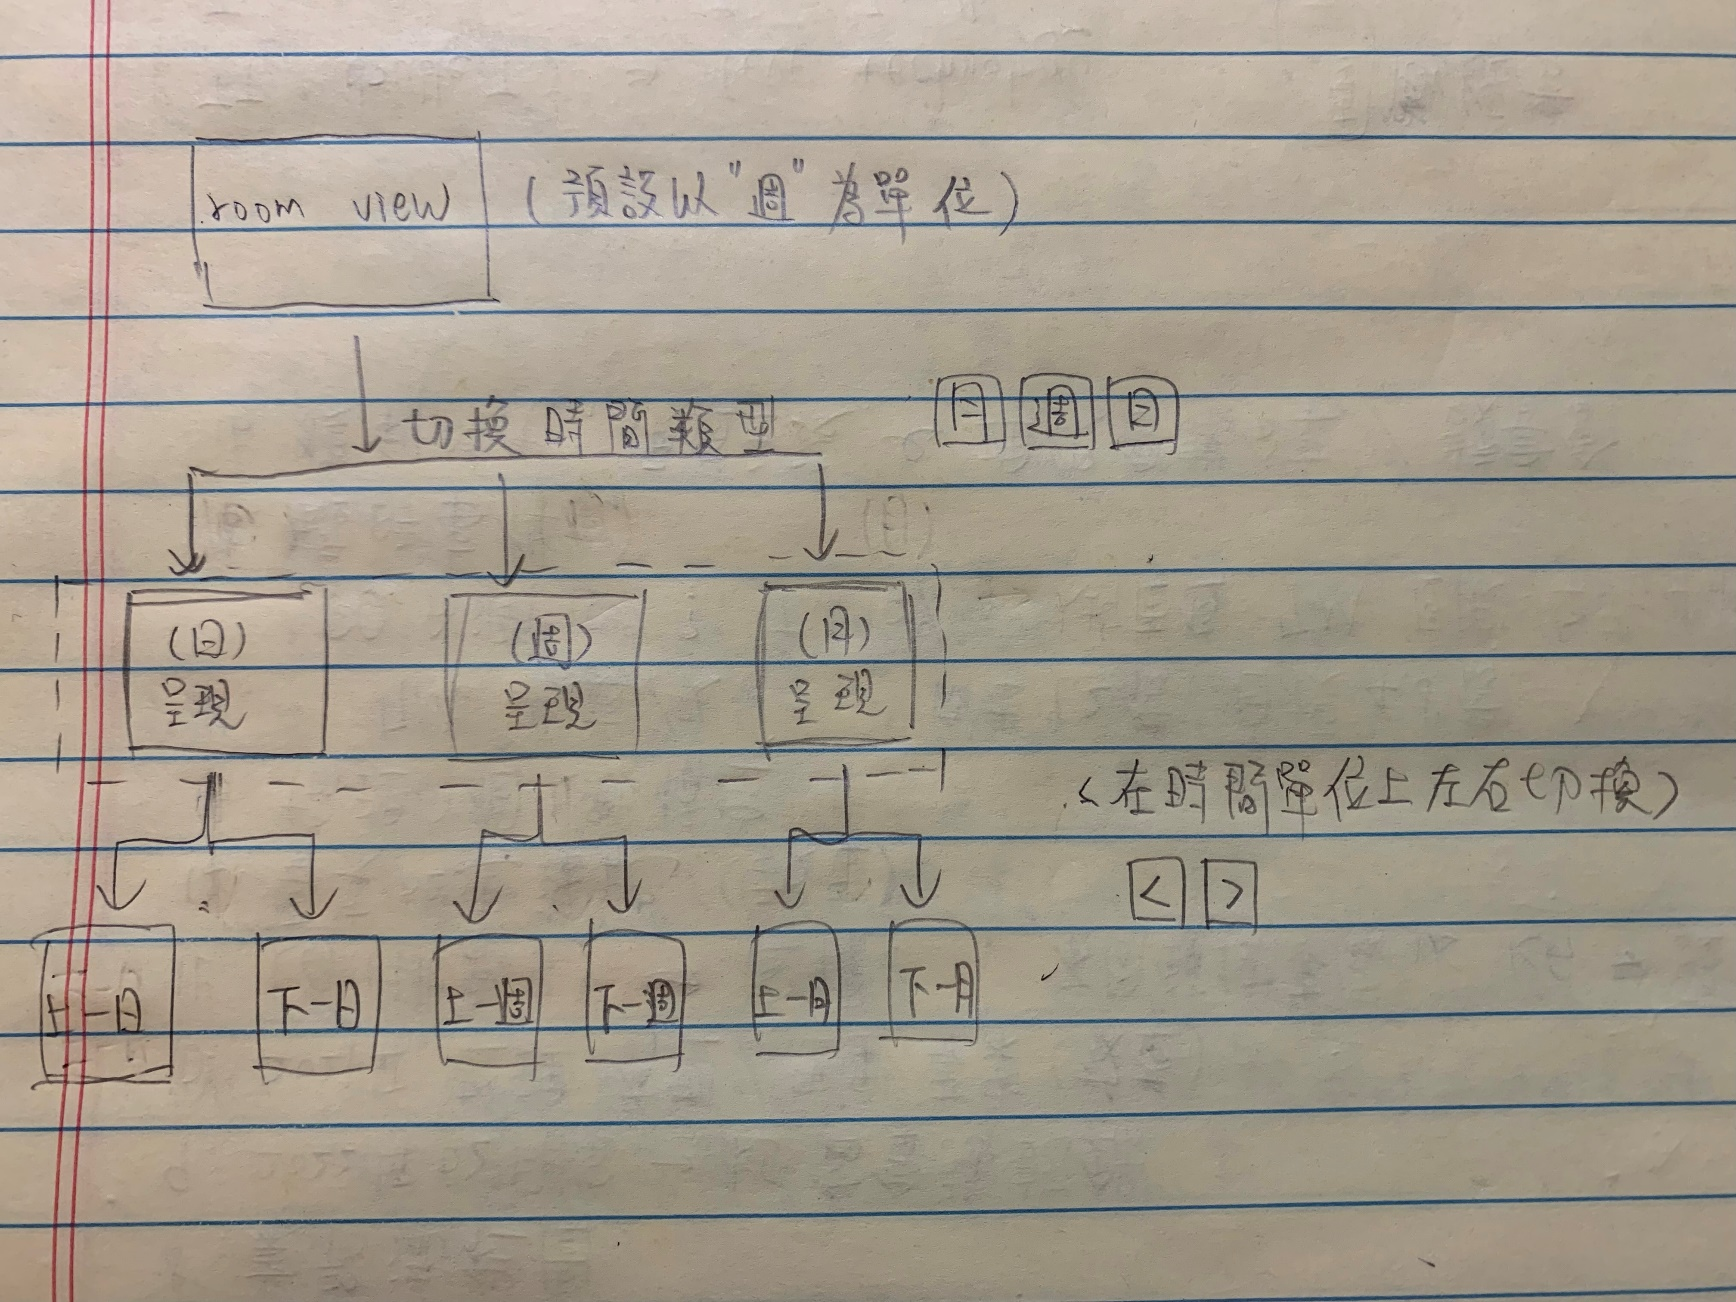 room view (預設以"週"為單位)
切換時間類型 月 週 日
(日) (週) (月)
呈現 呈現 呈現
(在時間單位上左右切換)
< >
上一日 下一日 上一週 下一週 上一月 下一月